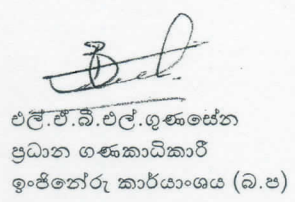 එල්.ඒ.බී.එල්.ගුණසේන
ප්‍රධාන ගණකාධිකාරී
ඉංජිනේරු කාර්යාංශය (බ.ප)